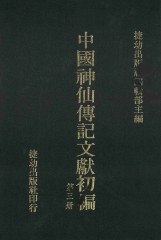 捷幼出版社編輯部主編
中國神仙傳記文獻初編
第三冊
捷幼出版社印行